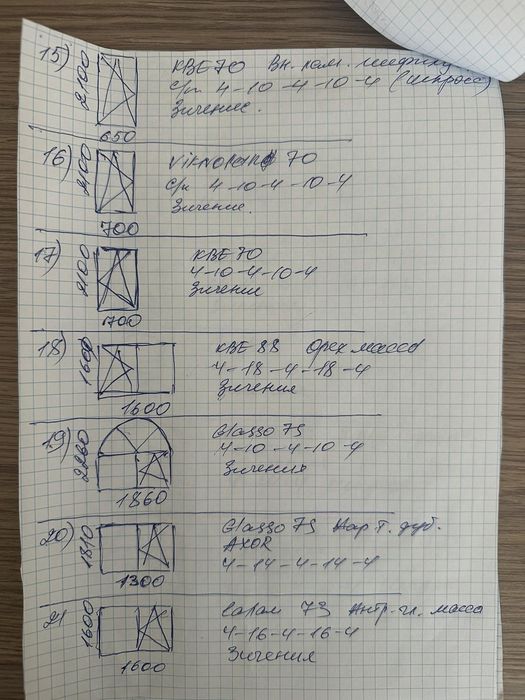 15) 2100 650 КВЕ 70 Вн. лам.
с/п 4-10-4-10-4
Зигение.
16) 2100 700 Viknoland 70
с/п 4-10-4-10-4
Зигение.
17) 2100 700 КВЕ 70
4-10-4-10-4
Зигение
18) 1600 1600 КВЕ 88 Орех масса
4-18-4-18-4
Зигения
19) 2260 1860 Glasso 75
4-10-4-10-4
Зигения
20) 1810 1300 Glasso 75 Нар т. дуб.
AXOR
4-14-4-14-4
21 1600 1600 73 Антр-гл. масса
4-16-4-16-4
Зигения